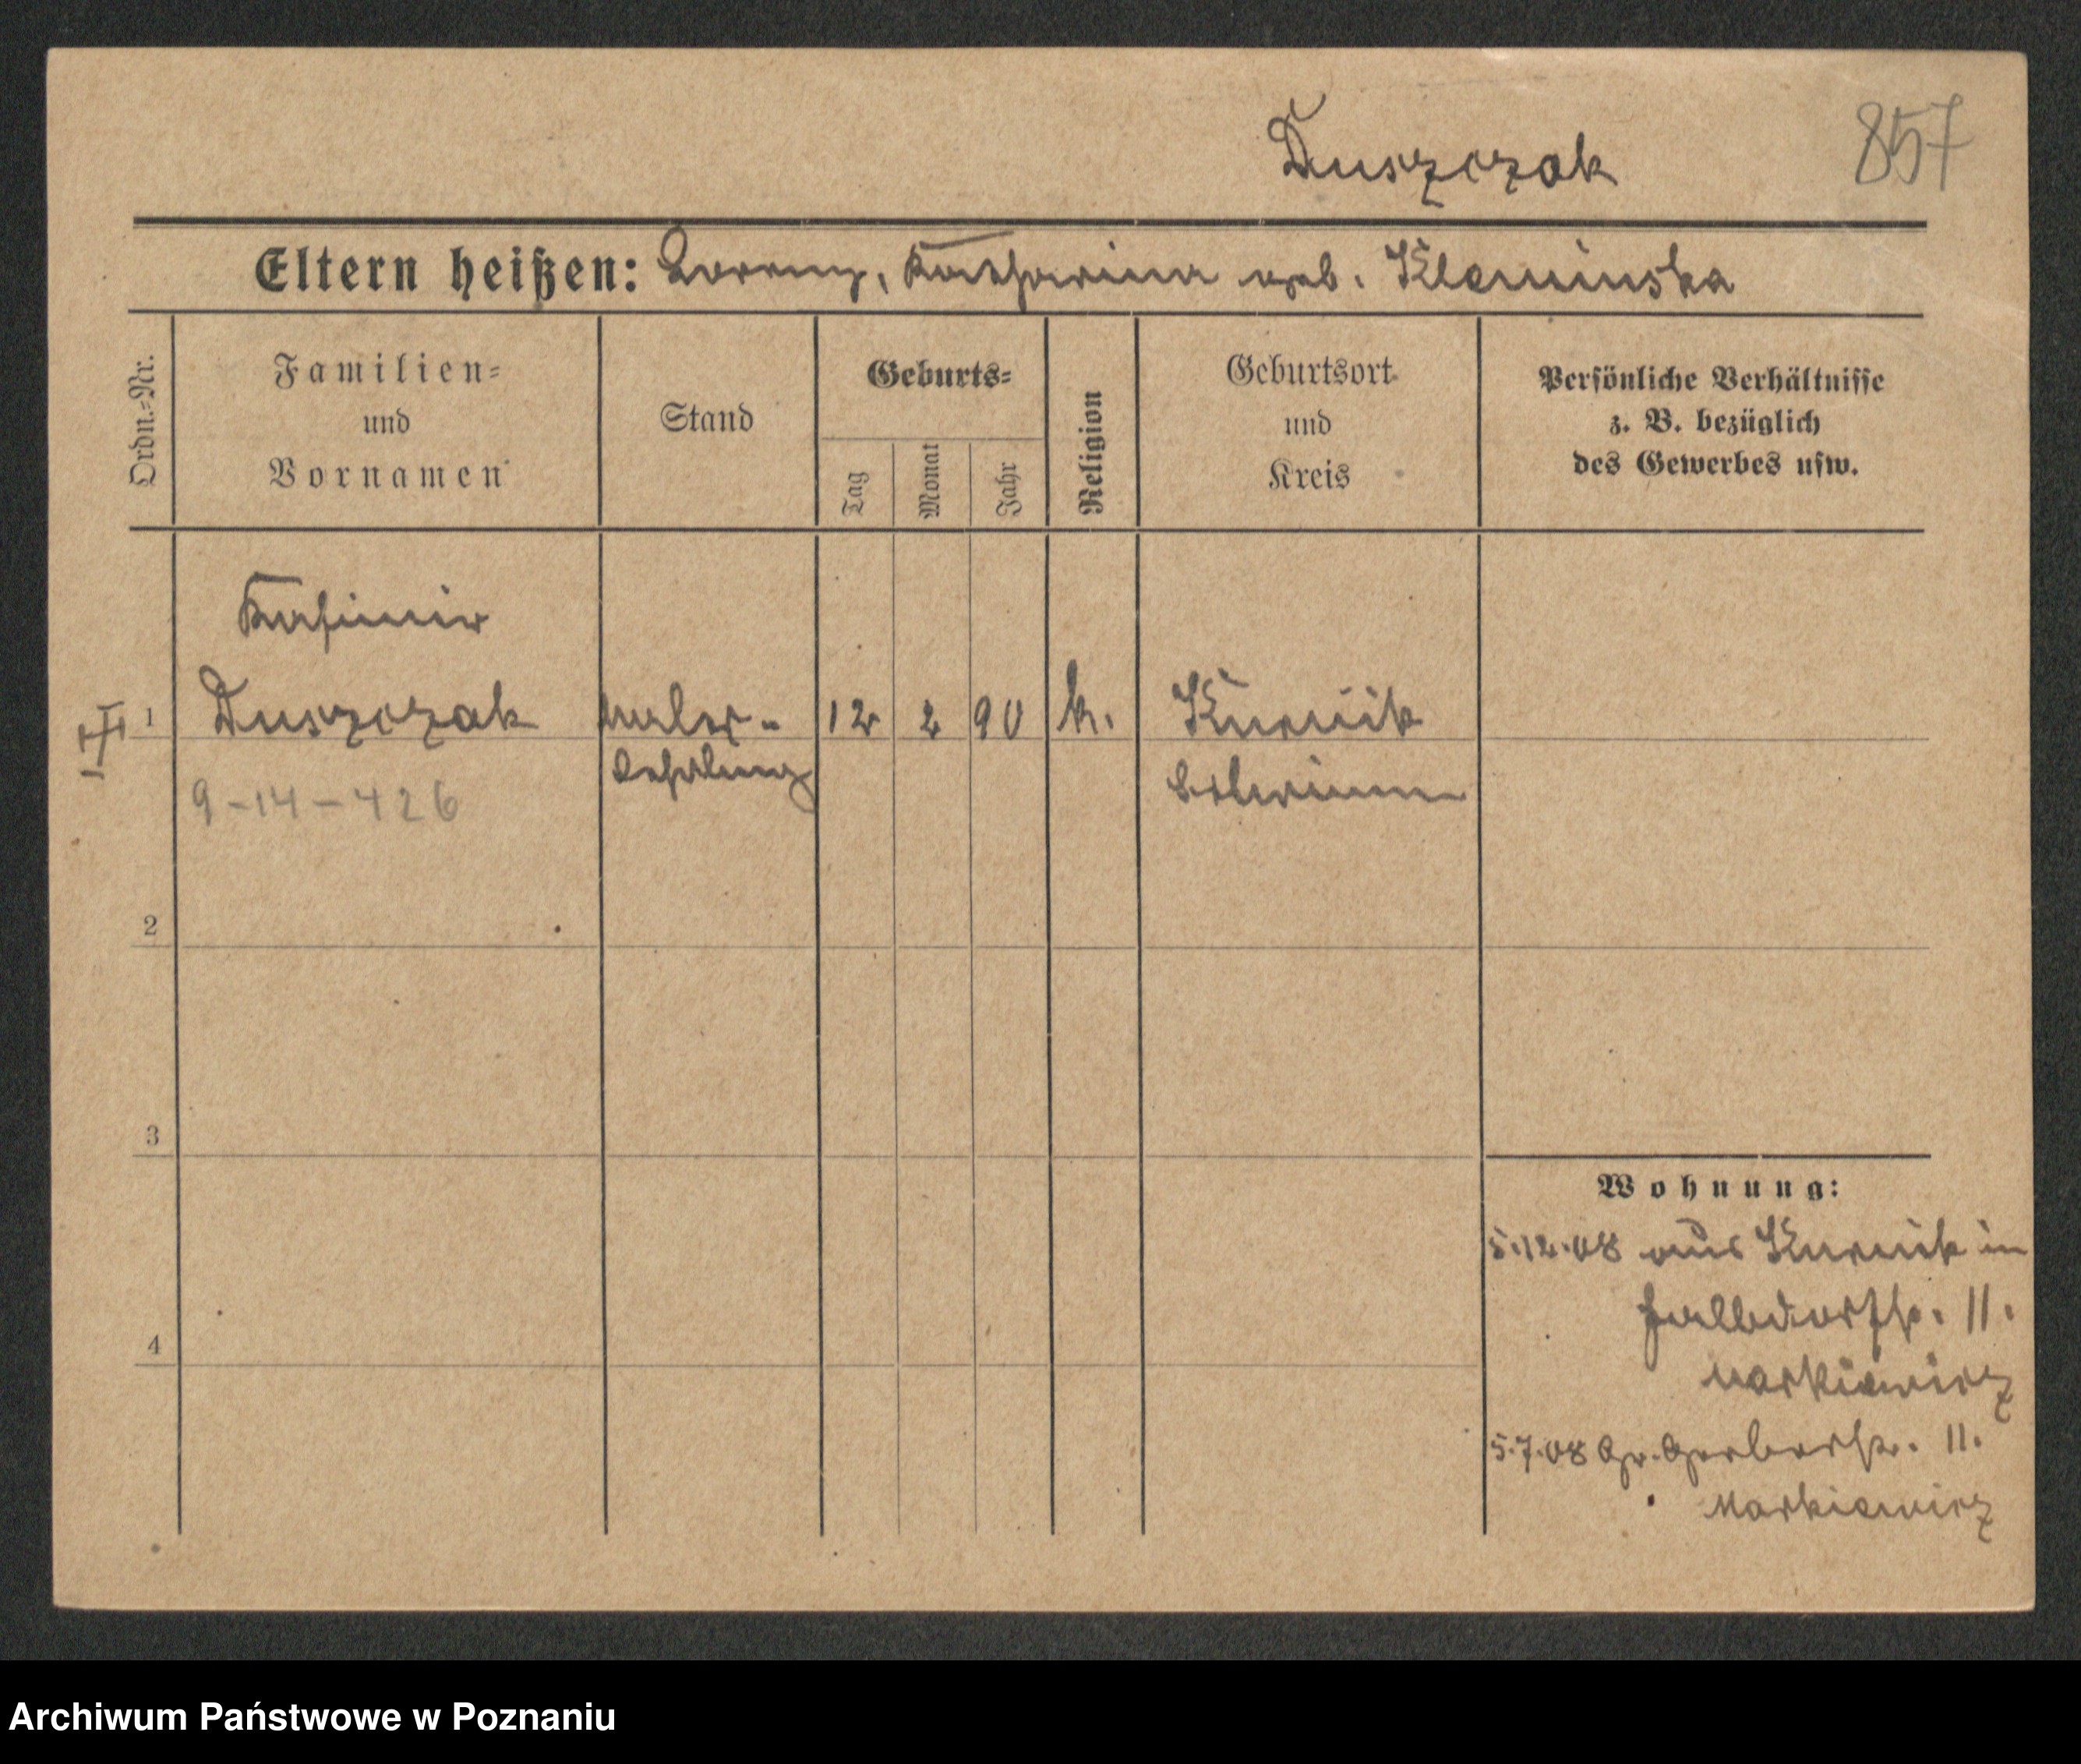 Duszczak
857
Eltern heißen: Lorenz, Katharina geb. Kleminska
Ordn.-Nr.
Familien-
und
Vornamen
Stand
Geburts-
Tag
Monat
Jahr
Religion
Geburtsort
und
Kreis
Persönliche Verhältnisse
z. B. bezüglich
des Gewerbes usw.
Kasimir
1 Duszczak Maler- 12 2 90 k. Kurnik
Lehrling
9-14-426
2
3
4
Wohnung:
5.12.08 aus Kurnik in
Halbdorfstr. 11.
Markiewicz
5.7.08 Gr. Gerberstr. 11.
Markiewicz
Archiwum Państwowe w Poznaniu